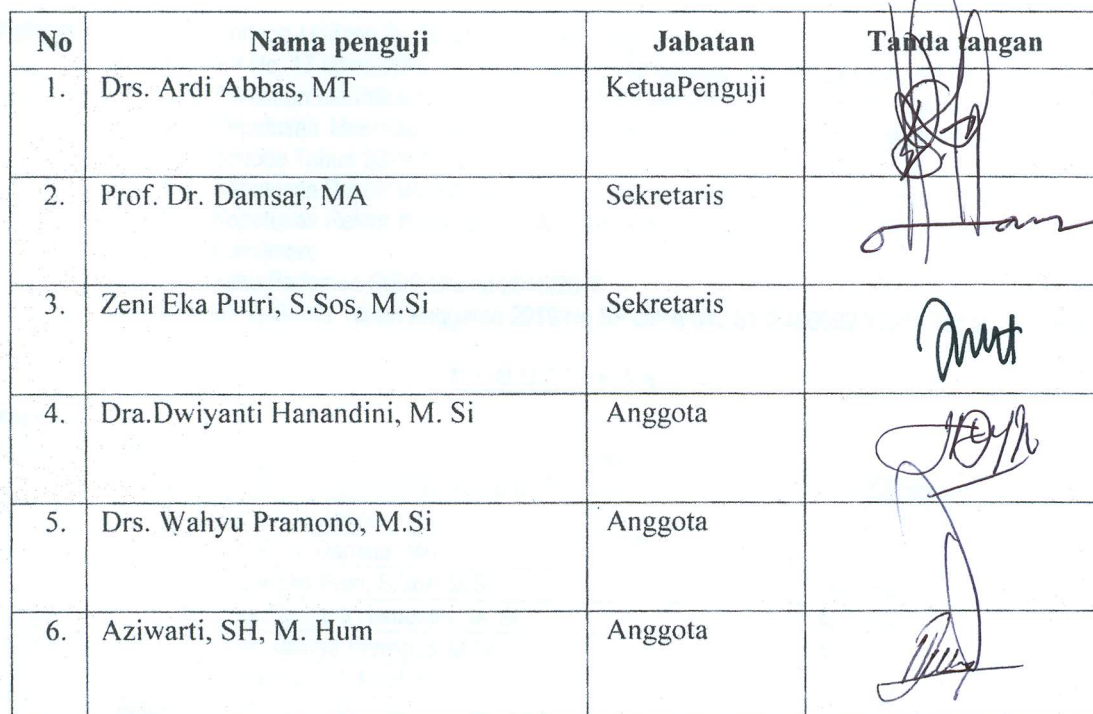 No Nama penguji Jabatan Tanda tangan
1. Drs. Ardi Abbas, MT KetuaPenguji
2. Prof. Dr. Damsar, MA Sekretaris
3. Zeni Eka Putri, S.Sos, M.Si Sekretaris
4. Dra.Dwiyanti Hanandini, M. Si Anggota
5. Drs. Wahyu Pramono, M.Si Anggota
6. Aziwarti, SH, M. Hum Anggota